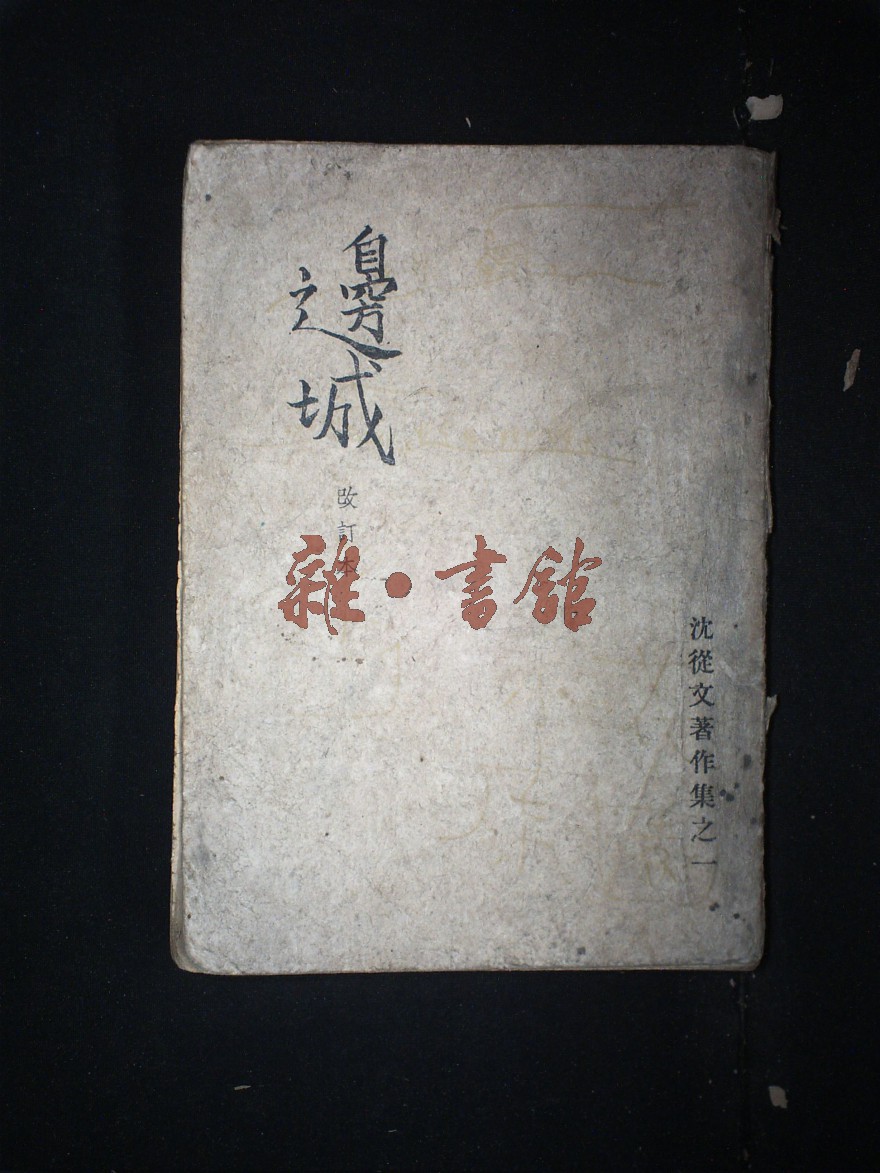 邊城
改訂本
雜·書館
沈從文著作集之一